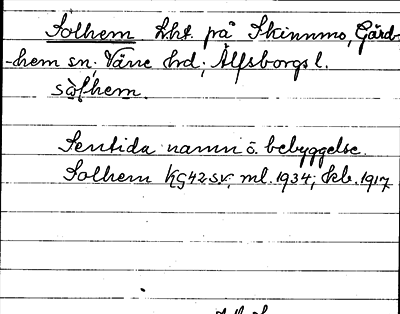 Solhem Lht på Skinnmo, Gärd-
-hem sn; Väne hrd; Älfsborgs l.
Sentida namn ö. bebyggelse.
Solhem KG42SV; ml. 1934; kb. 1917